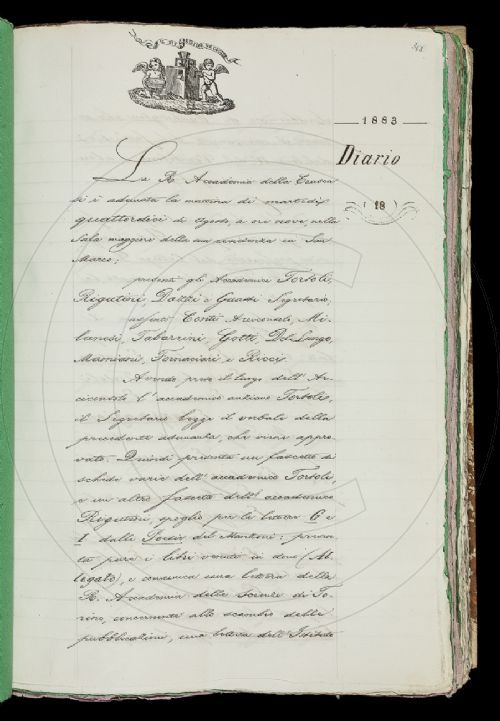 1883
Diario
(18)
La R. Accademia della Crusca
si è adunata la mattina di martedì
quattordici di Agosto, a ore nove, nella
Sala maggiore della sua residenza in San
Marco;
presenti gli Accademici Tortoli,
Rigutini, Dazzi e Guasti Segretario,
assenti Conti Arciconsolo, Mi-
lanesi, Tabarrini, Gotti, Del Lungo,
Mamiani, Fornaciari e Ricci.
Avendo preso il luogo dell' Ar-
ciconsolo l'accademico anziano Tortoli,
il Segretario legge il verbale della
precedente adunanza, che viene appro-
vato. Quindi presenta un fascetto di
schede varie dell' accademico Tortoli,
e un altro fascetto dell' accademico
Rigutini, spoglio per la lettera G e
I dalle Poesie del Manzoni: presen-
ta pure i libri venuti in dono (Al-
legato), e comunica una lettera della
R. Accademia delle Scienze di To-
rino, concernente allo scambio delle
pubblicazioni, una lettera dell' Istituto